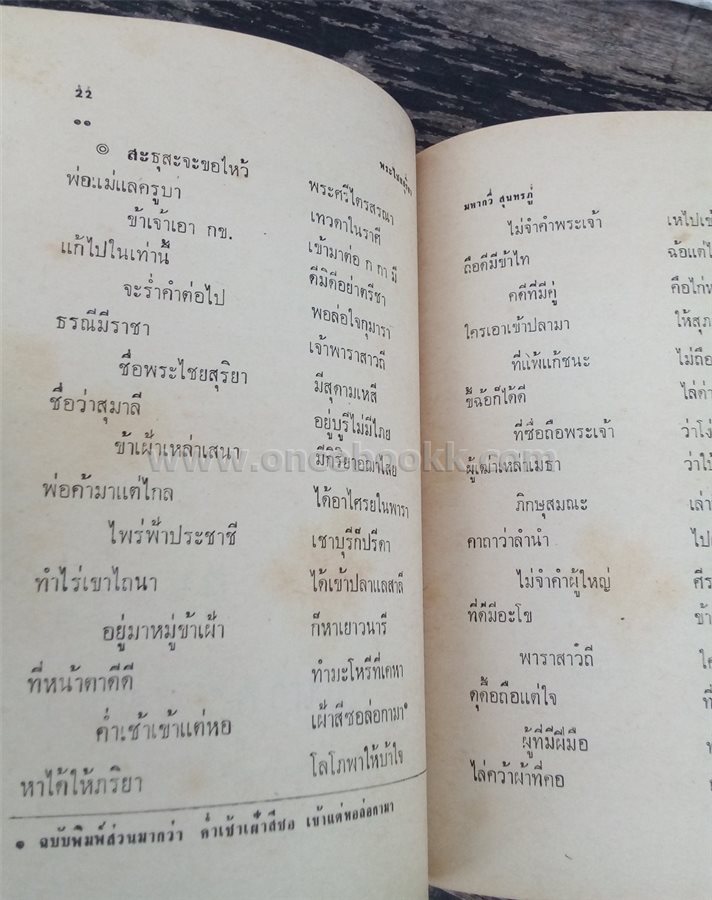 ๒๒
๑๑
๏ สะธุสะจะขอไหว้ พระศรีไตรสรณา
พ่อแม่แลครูบา เทวดาในราศี
ข้าเจ้าเอา กข. เข้ามาต่อ ก กา มี
แก้ไปในเท่านี้ ดีมิดีอย่าตรีชา
จะร่ำคำต่อไป พอล่อใจกุมารา
ธรณีมีราชา เจ้าพาราสาวถี
ชื่อพระไชยสุริยา มีสุดามเหสี
ชื่อว่าสุมาลี อยู่บูรีไม่มีไภย
ข้าเฝ้าเหล่าเสนา มีกิริยาอฌาไศย
พ่อค้ามาแต่ไกล ได้อาไศรยในพารา
ไพร่ฟ้าประชาชี เชาบุรีก็ปรีดา
ทำไร่เขาไถนา ได้เข้าปลาแลสาลี
อยู่มาหมู่ข้าเฝ้า ก็หาเยาวนารี
ที่หน้าตาดีดี ทำมะโหรีที่เคหา
ค่ำเช้าเข้าแต่หอ เฝ้าสีซอล่อกามา๑
หาได้ให้ภริยา โลโภพาให้บ้าใจ
๑ ฉบับพิมพ์ส่วนมากว่า ค่ำเช้าเฝ้าสีซอ เข้าแต่หอล่อกามา
www.oncebookk.com
มหากวี สุนทรภู่
ไม่จำคำพระเจ้า เหไปเข้
ถือดีมีข้าไท ฉ้อแต่ไ
คดีที่มีคู่ คือไก่ห
ใครเอาเข้าปลามา ให้สุภ
ที่แพ้แก้ชนะ ไม่ถือ
ขี้ฉ้อก็ได้ดี ไล่ด่
ที่ซื่อถือพระเจ้า ว่าโง่
ผู้เฒ่าเหล่าเมธา ว่าใบ้
ภิกษุสมณะ เล่า
คาถาว่าลำนำ ไป
ไม่จำคำผู้ใหญ่ ศีร
ที่ดีมีอะโข ข้า
พาราสาวัถี ใค
ดุดื้อถือแต่ใจ ที่
ผู้ที่มีฝีมือ
ไล่คว้าผ้าที่คอ